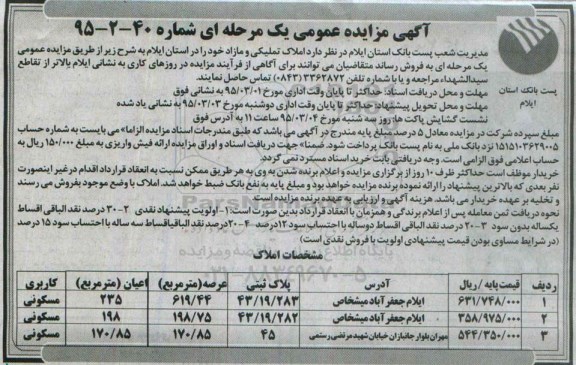 آگهی مزایده عمومی یک مرحله ای شماره ۴۰-۲-۹۵
پست بانک استان
ایلام
مدیریت شعب پست بانک استان ایلام در نظر دارد املاک تملیکی و مازاد خود را در استان ایلام به شرح زیر از طریق مزایده عمومی
یک مرحله ای به فروش رساند متقاضیان می توانند برای آگاهی از فرآیند مزایده در روزهای کاری به نشانی ایلام بالاتر از تقاطع
سیدالشهداء مراجعه و یا با شماره تلفن ۳۳۶۲۸۷۲ (۰۸۴۳) تماس حاصل نمایند.
مهلت و محل دریافت اسناد: حداکثر تا پایان وقت اداری مورخ ۹۵/۰۳/۰۱ به نشانی فوق
مهلت و محل تحویل پیشنهاد: حداکثر تا پایان وقت اداری دوشنبه مورخ ۹۵/۰۳/۰۳ به نشانی یاد شده
نشست گشایش پاکت ها: روز سه شنبه مورخ ۹۵/۰۳/۰۴ ساعت ۱۱ به آدرس فوق
مبلغ سپرده شرکت در مزایده معادل ۵ درصد مبلغ پایه مندرج در آگهی می باشد که طبق مندرجات اسناد مزایده الزاما" می بایست به شماره حساب
۱۵۱۵۱۰۳۶۲۹۰۰۵ نزد بانک ملی به نام پست بانک پرداخت شود. ضمنا" جهت دریافت اسناد و اوراق مزایده ارائه فیش واریزی به مبلغ ۱۵۰/۰۰۰ ریال به
حساب اعلامی فوق الزامی است. وجه دریافتی بابت خرید اسناد مسترد نمی گردد.
خریدار موظف است حداکثر ظرف ۱۰ روز از برگزاری مزایده و اعلام برنده شدن به وی به هر طریق ممکن نسبت به انعقاد قرارداد اقدام در غیر اینصورت
نفر بعدی که بالاترین پیشنهاد را ارائه نموده برنده مزایده خواهد بود و مبلغ پایه به نفع بانک ضبط خواهد شد. املاک با وضع موجود بفروش می رسند
و تخلیه بر عهده خریدار می باشد. هزینه آگهی و ارزیابی به عهده برنده مزایده است.
نحوه دریافت ثمن معامله پس از اعلام برندگی و همزمان با انعقاد قرارداد بدین صورت است: ۱- اولویت پیشنهاد نقدی ۲-۳۰ درصد نقد الباقی اقساط
یکساله بدون سود ۳-۲۰ درصد نقد الباقی اقساط دوساله با احتساب سود ۱۲ درصد ۴-۲۰ درصد نقد الباقی اقساط سه ساله با احتساب سود ۱۵ درصد
(در شرایط مساوی بودن قیمت پیشنهادی اولویت با فروش نقدی است)
مشخصات املاک
ردیف قیمت پایه / ریال آدرس پلاک ثبتی عرصه(مترمربع) اعیان (مترمربع) کاربری
۱ ۶۳۱/۷۴۸/۰۰۰ ایلام جعفرآباد میشخاص ۴۳/۱۹/۲۸۳ ۶۱۹/۴۴ ۲۳۵ مسکونی
۲ ۳۵۸/۹۷۵/۰۰۰ ایلام جعفرآباد میشخاص ۴۳/۱۹/۲۸۲ ۱۹۸/۷۵ ۱۹۸ مسکونی
۳ ۵۴۴/۳۵۰/۰۰۰ مهران بلوار جانبازان خیابان شهید مرتضی رستمی ۴۵ ۱۷۰/۸۵ ۱۷۰/۸۵ مسکونی